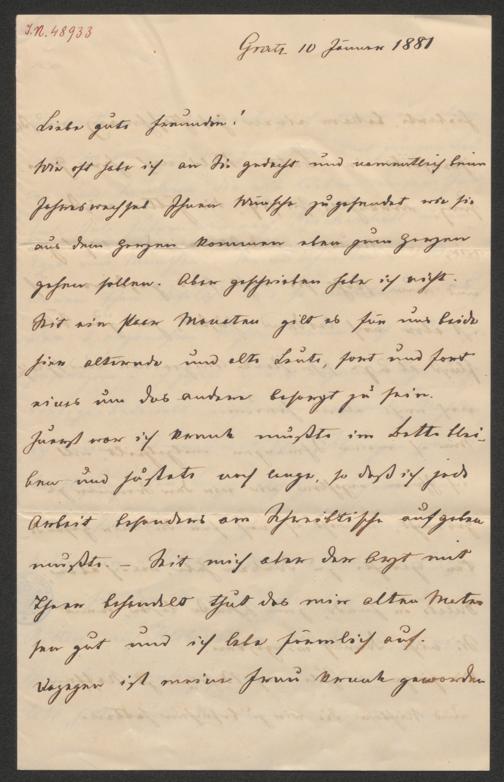 I.N. 48933
Gratz 10 Jänner 1881
Liebe gute Freundin!
Wie oft habe ich an Sie gedacht und namentlich beim
Jahreswechsel Ihnen Wünsche zugesendet wie sie
aus dem Herzen kommen eben zum Herzen
gehen sollen. Aber geschrieben habe ich nicht.
Seit ein paar Monaten gilt es für uns beide
hier alternde und alte Leute, fort und fort
eines um das andere besorgt zu sein.
Zuerst war ich krank mußte im Bette blei-
ben und hustete noch lange, so daß ich jede
Arbeit besonders am Schreibtische aufgeben
mußte. – Seit mich aber der Arzt mit
Theer behandelt thut das mir alten Matro
sen gut und ich lebe förmlich auf.
Dagegen ist meine Frau krank geworden